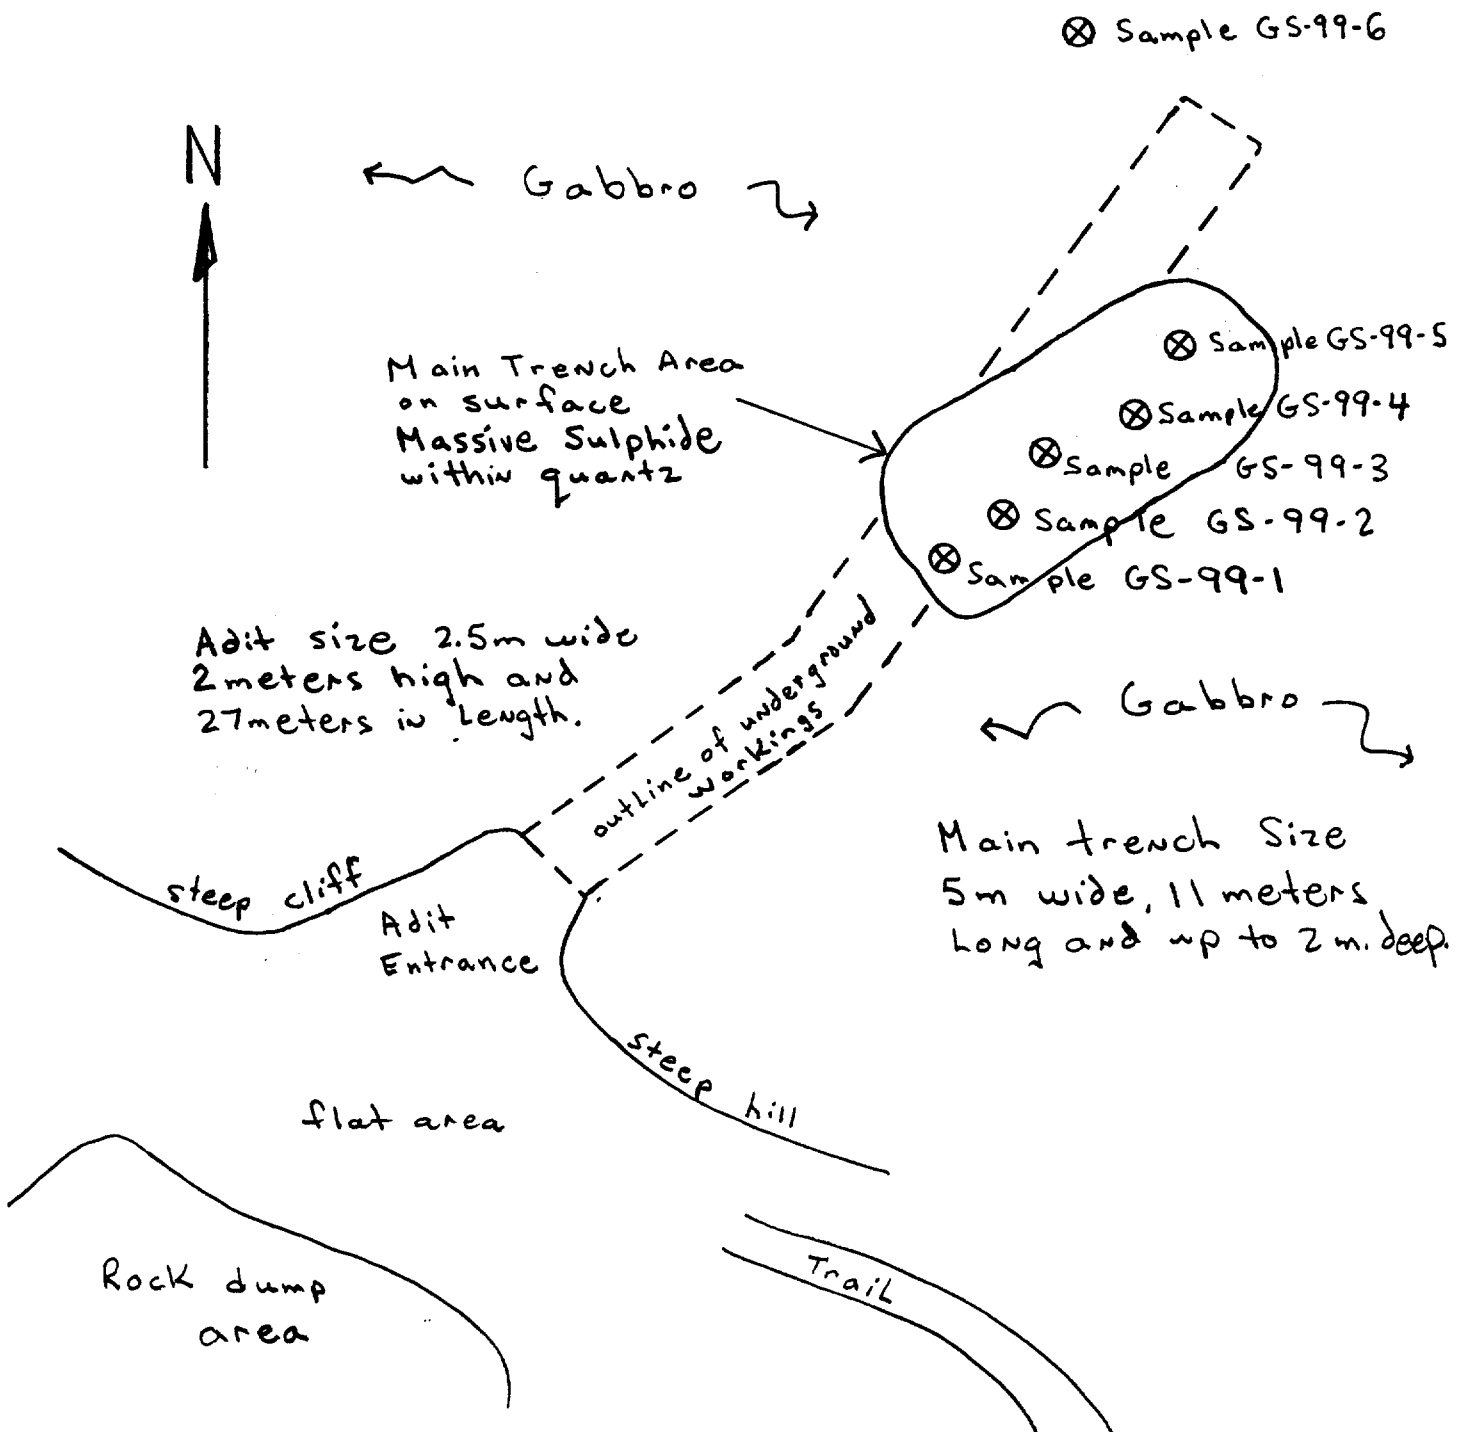 Sample GS-99-6
N
Gabbro
Sample GS-99-5
Main Trench Area
on surface
Massive Sulphide
within quartz
Sample GS-99-4
Sample GS-99-3
Sample GS-99-2
Sample GS-99-1
Adit size 2.5m wide
2 meters high and
27 meters in Length.
outline of underground
workings
Gabbro
Main trench Size
5m wide, 11 meters
Long and up to 2 m. deep.
steep cliff
Adit
Entrance
steep hill
flat area
Rock dump
area
Trail